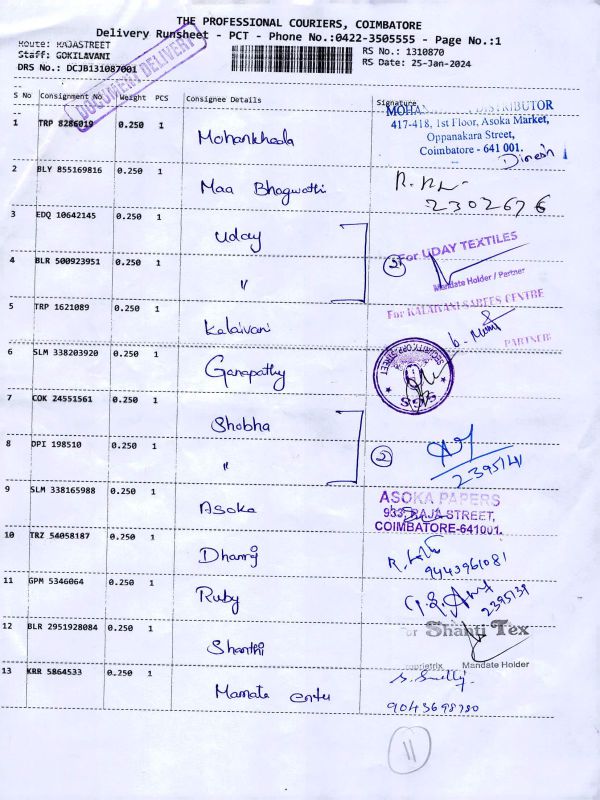 THE PROFESSIONAL COURIERS, COIMBATORE
Delivery Runsheet - PCT - Phone No.:0422-3505555 - Page No.:1
Route: RAJASTREET
RS No.: 1310870
Staff: GOKILAVANI
RS Date: 25-Jan-2024
DRS No.: DCJB131087001
DOCUMENT DELIVERY
S No Consignment No Weight PCS Consignee Details Signature
1 TRP 8286019 0.250 1 Mohankheda
DISTRIBUTOR
417-418, 1st Floor, Asoka Market,
Oppanakara Street,
Coimbatore - 641 001.
Dinesh
2 BLY 855169816 0.250 1 Maa Bhagwathi
2302676
3 EDQ 10642145 0.250 1 Uday
For UDAY TEXTILES
2
Mandate Holder / Partner
4 BLR 500923951 0.250 1 "
5 TRP 1621089 0.250 1 Kalaivani
For KALAIVANI SAREES CENTRE
PARTNER
6 SLM 338203920 0.250 1 Ganapathy
7 COK 24551561 0.250 1 Shobha
8 DPI 198510 0.250 1 "
2
2395141
9 SLM 338165988 0.250 1 Asoka
ASOKA PAPERS
933, RAJA STREET,
COIMBATORE-641001.
10 TRZ 54058187 0.250 1 Dhanraj
9443961081
11 GPM 5346064 0.250 1 Ruby
2395139
12 BLR 2951928084 0.250 1 Shanthi
For Shanti Tex
Proprietrix Mandate Holder
13 KRR 5864533 0.250 1 Mamata enter
9043698780
11